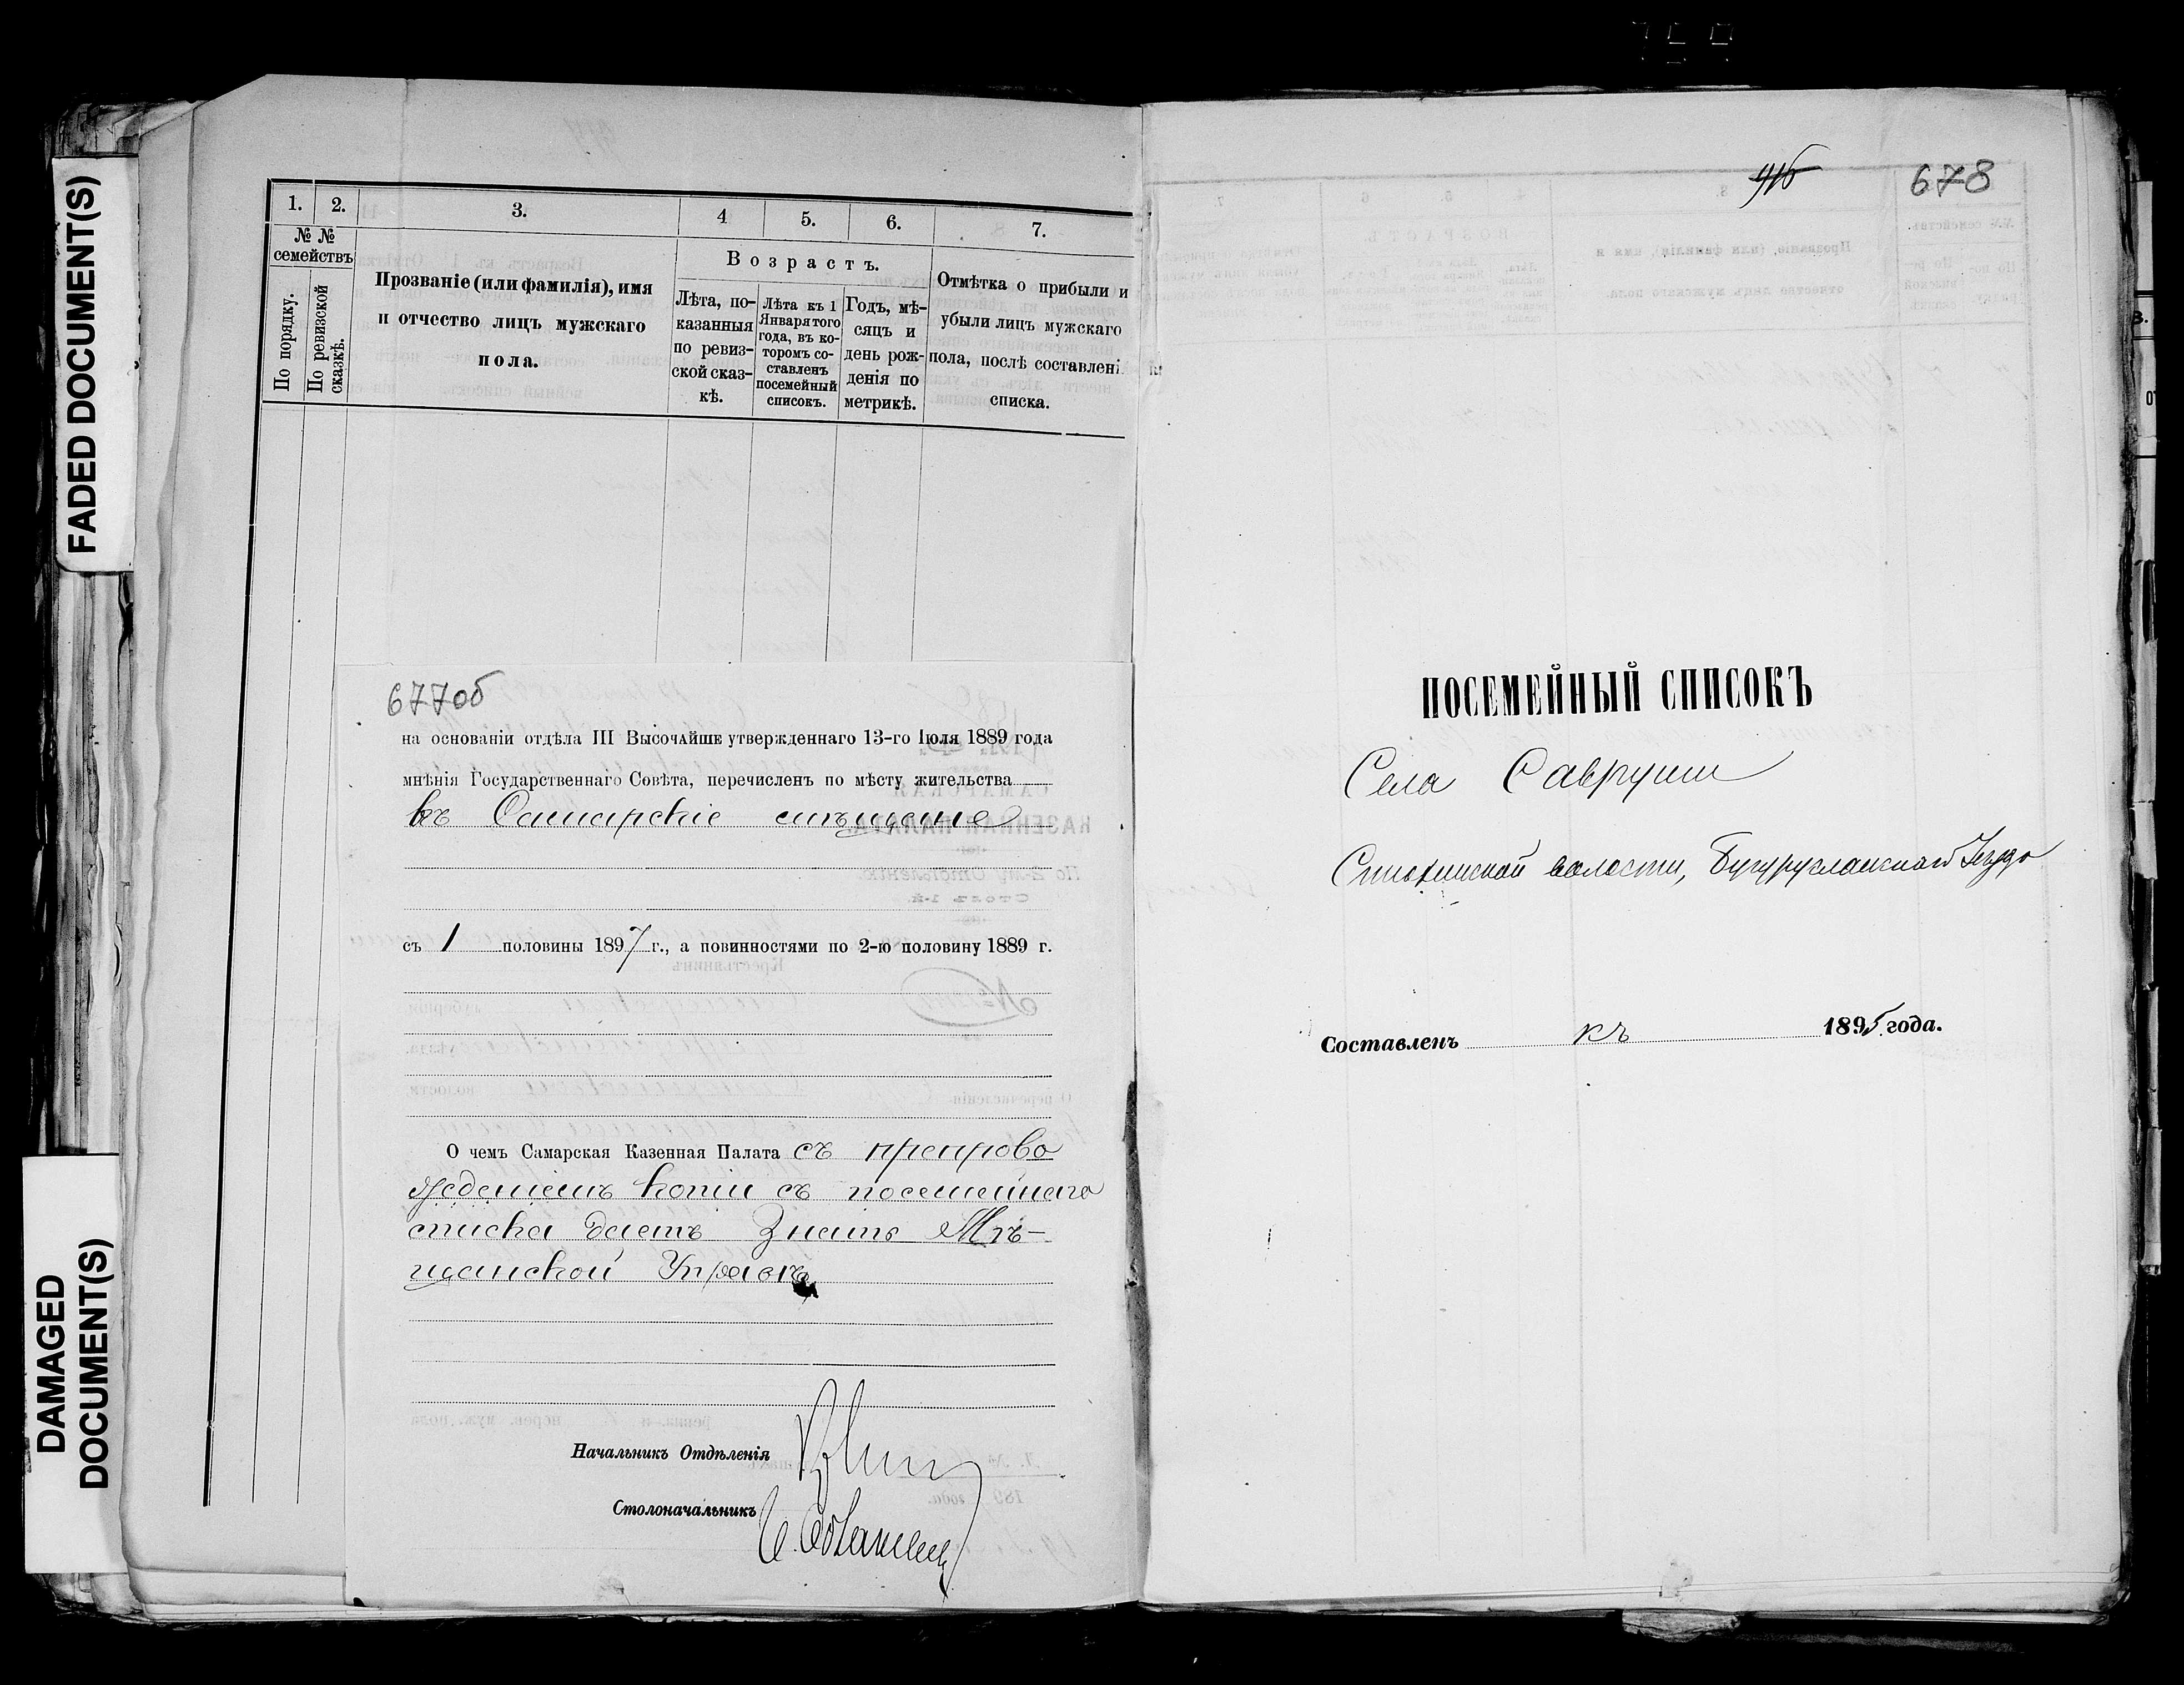 FADED DOCUMENT(S)
DAMAGED
DOCUMENT(S)
1. 2. 3. 4 5. 6. 7.
№ №
семействъ
По порядку.
По ревизской
сказкѣ.
Прозваніе (или фамилія), имя
и отчество лицъ мужскаго
пола.
Возрастъ.
Лѣта, по-
казанныя
по ревиз-
ской сказ-
кѣ.
Лѣта къ 1
Января того
года, въ ко-
торомъ со-
ставленъ
посемейный
списокъ.
Годъ, мѣ-
сяцъ и
день рож-
денія по
метрикѣ.
Отмѣтка о прибыли и
убыли лицъ мужскаго
пола, послѣ составлені
списка.
677об
на основаніи отдѣла III Высочайше утвержденнаго 13-го Іюля 1889 года
мнѣнія Государственнаго Совѣта, перечисленъ по мѣсту жительства
въ Самарскіе мѣщане
съ 1 половины 1897 г., а повинностями по 2-ю половину 1889 г.
О чемъ Самарская Казенная Палата съ препрово
жденіемъ копіи съ посемейнаго
списка даетъ знать Мѣ-
щанской Управѣ
Начальникъ Отдѣленія
Столоначальникъ
678
ПОСЕМЕЙНЫЙ СПИСОКЪ
Села Савруши
волости, Бугурусланскаго Уѣзда
Составленъ къ 1895 года.